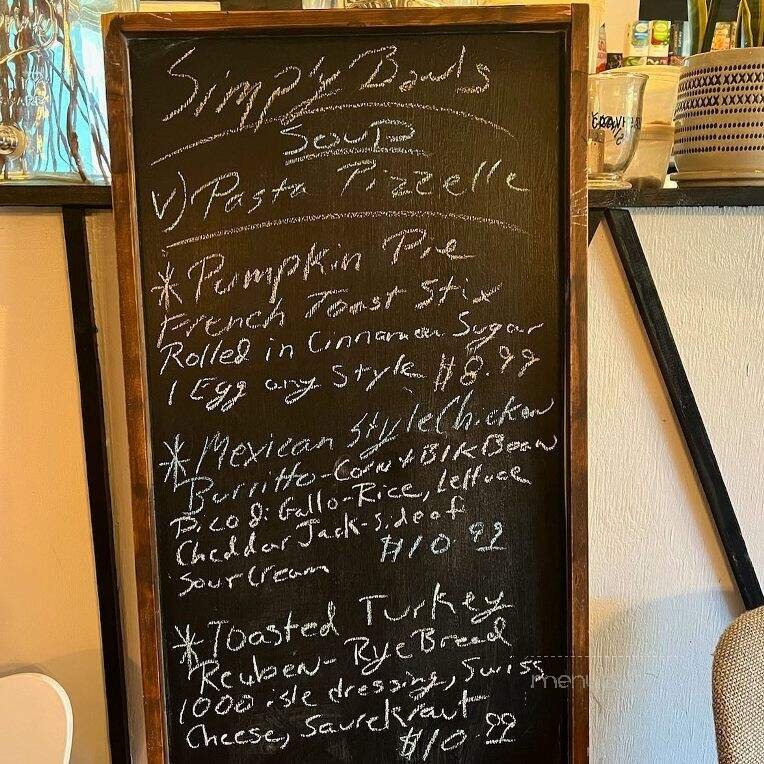 Simply Bowls
Soup
v) Pasta Pizzelle
* Pumpkin Pie
French Toast Stix
Rolled in Cinnamon Sugar
1 Egg any Style $8.99
* Mexican Style Chicken
Burritto - Corn + Blk Bean
Pico di Gallo - Rice, Lettuce
Cheddar Jack - side of
Sour Cream $10.99
* Toasted Turkey
Reuben - Rye Bread
1000 isle dressing, Swiss
Cheese, Saurekraut
$10.99
menu